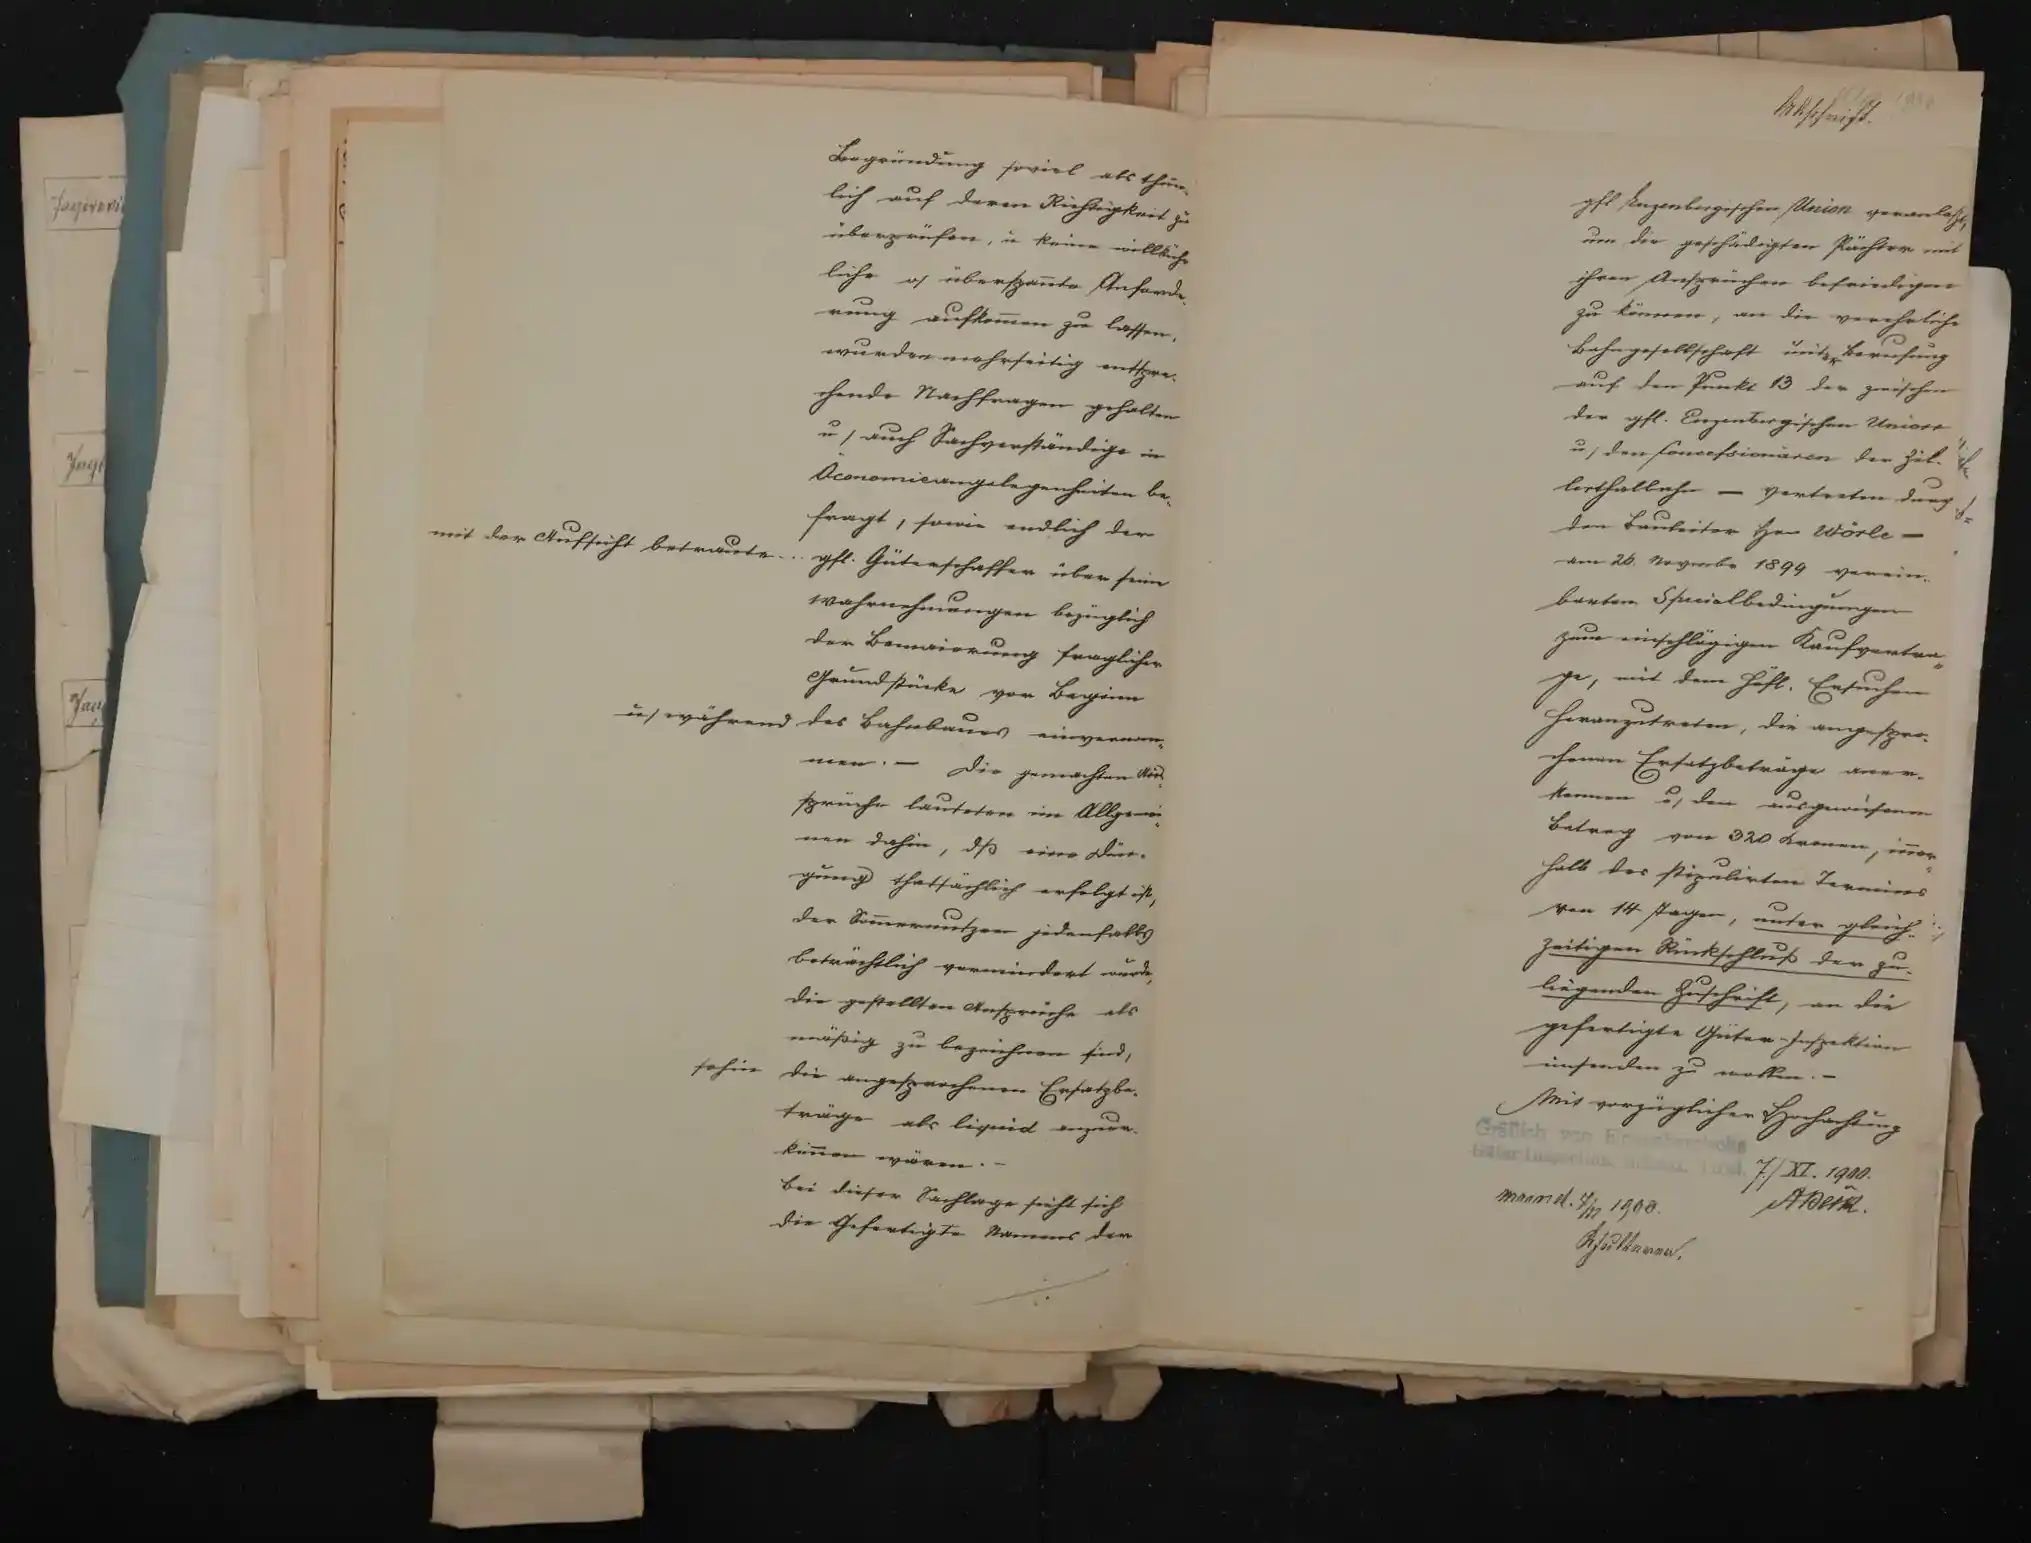 Begründung soviel als thun-
lich auf deren Richtigkeit zu
überprüfen, u keine willkühr
liche o/ überspannte Anforde-
rung aufkommen zu lassen,
wurden mehrseitig entspre-
chende Nachfragen gehalten
u/ auch Sachverständige in
Öconomieangelegenheiten be-
fragt, sowie endlich der
mit der Aufsicht betraute gfl. Güterschaffer über seine
Wahrnehmungen bezüglich
der Bemaierung fraglicher
Grundstücke vor Beginn
u/ während des Bahnbaues einvernom-
men. — Die gemachten Aus-
sprüche lauteten im Allgemei-
nen dahin, dß eine Dün-
gung thatsächlich erfolgt ist,
der Sommernutzen jedenfalls
beträchtlich vermindert wurde,
die gestellten Ansprüche als
mäßig zu bezeichnen sind,
sohin die angesprochenen Ersatzbe-
träge als liquid anzuer-
kennen wären. —
Bei dieser Sachlage sieht sich
die Gefertigte Namens der
Abschrift.
gfl Enzenbergischen Union veranlaßt,
um die geschädigten Pächter mit
ihren Ansprüchen befriedigen
zu können, an die verehrliche
Bahngesellschaft unter Berufung
auf den Punkt 13 der zwischen
der gfl. Enzenbergischen Union
u/ den Concessionären der Zil-
lerthalbahn — vertreten durch
den Bauleiter Hrn Wörle —
am 26. November 1899 verein-
barten Specialbedingungen
zum einschlägigen Kaufvertra-
ge, mit dem höfl. Ersuchen
heranzutreten, die angespro-
chenen Ersatzbeträge aner-
kennen u/ den ausgewiesenen
Betrag von 320 Kronen, inner-
halb des stipulirten Termines
von 14 Tagen, unter gleich-
zeitigen Rückschluß der zu-
liegenden Zuschrift, an die
gefertigte Güter-Inspektion
einsenden zu wollen. —
Mit vorzüglicher Hochachtung
Gräflich von
7/XI. 1900.
1900.